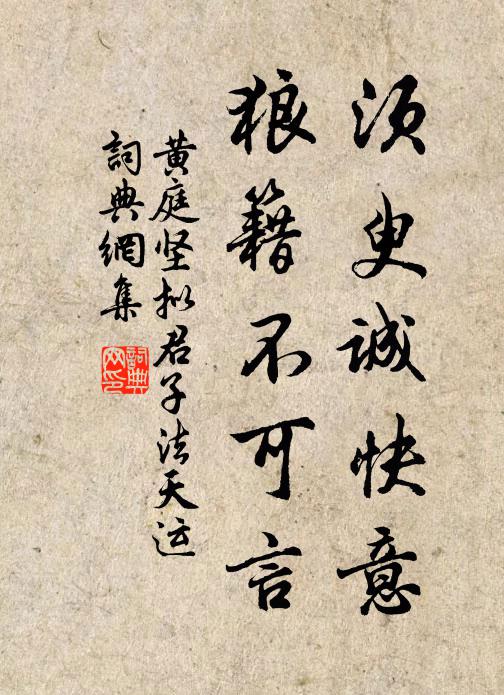 须臾诚快意
狼籍不可言
黄庭坚拟君子法天运
詞典網集
詞典网印